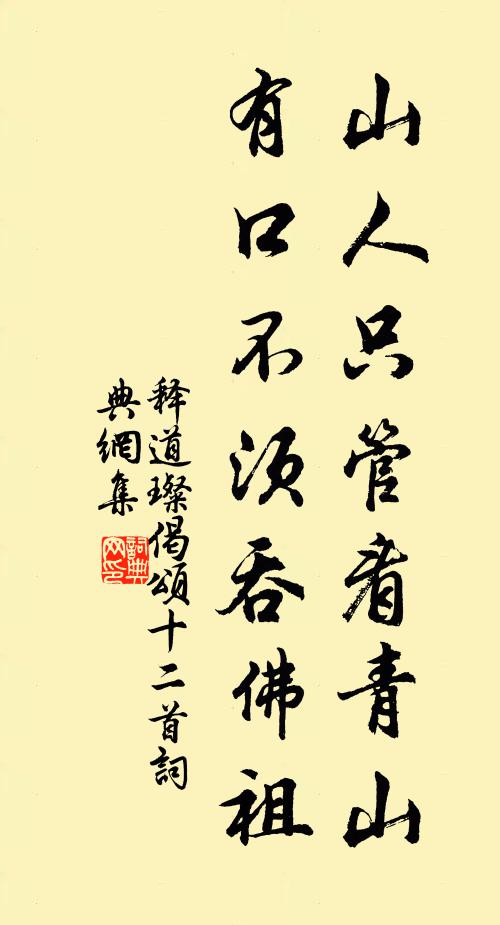 山人只管看青山
有口不须吞佛祖
释道璨偈頌十二首詞
典網集
詞典
网印